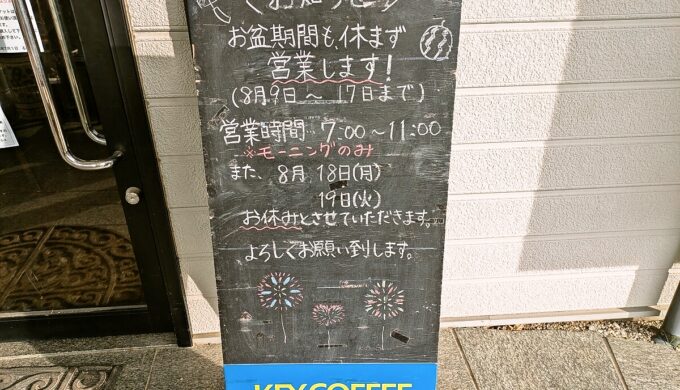 ＜お知らせ＞
お盆期間も、休まず
営業します!
(8月9日～17日まで)
営業時間 7:00～11:00
※モーニングのみ
また、8月 18日(月)
19日(火)
お休みとさせていただきます。
よろしくお願い到します。
KEY COFFEE